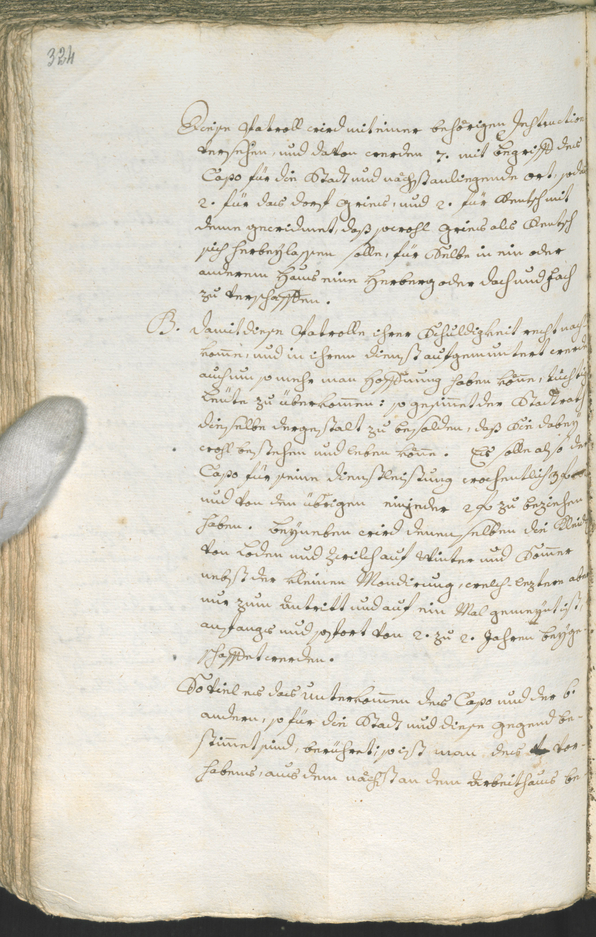 324
Diese Patroll wird mit einer behörigen Instruction
versehen, und davon werden 7. mit begriff des
Capo für die Stadt und nächstanliegende ort, sodan
2. für das dorf Gries, und 2. für Rentsch mit
deme gewidmet, daß sowohl Gries als Rentsch
sich herbeylassen solle, für Selbe in ein oder
anderem Haus eine Herberg oder dach und fach
zu verschaffen.
B. Damit diese Patrolle ihrer Schuldigkeit recht nach-
komme, und in ihrem dienst aufgemuntert werde
auch um so mehr man Hoffnung haben könne, tüchtige
Leüte zu überkommen: so gesinnet der Stadtrat
dieselbe dergestalt zu besolden, daß Sie dabey
wohl bestehen und leben könne. Es solle also der
Capo für seine dienstleistung wochentlich
und von den übrigen ein jeder 2 zu beziehen
haben. beyneben wird denenselben die Kleidung
von Loden und Zwilch auf Winter und Sommer
nebst der kleinen Mondirung, welch-leztere aber
nur zum Antritt und auf ein Mal gemeynt ist,
anfangs und sofort von 2. zu 2. Jahren beyge-
schaffet werden.
So viel es das unterkommen des Capo und der 6.
andern, so für die Stadt und diese gegend be-
stimmet sind, berühret, so ist man des Vor-
habens, aus dem nächst an dem Arbeithaus be-